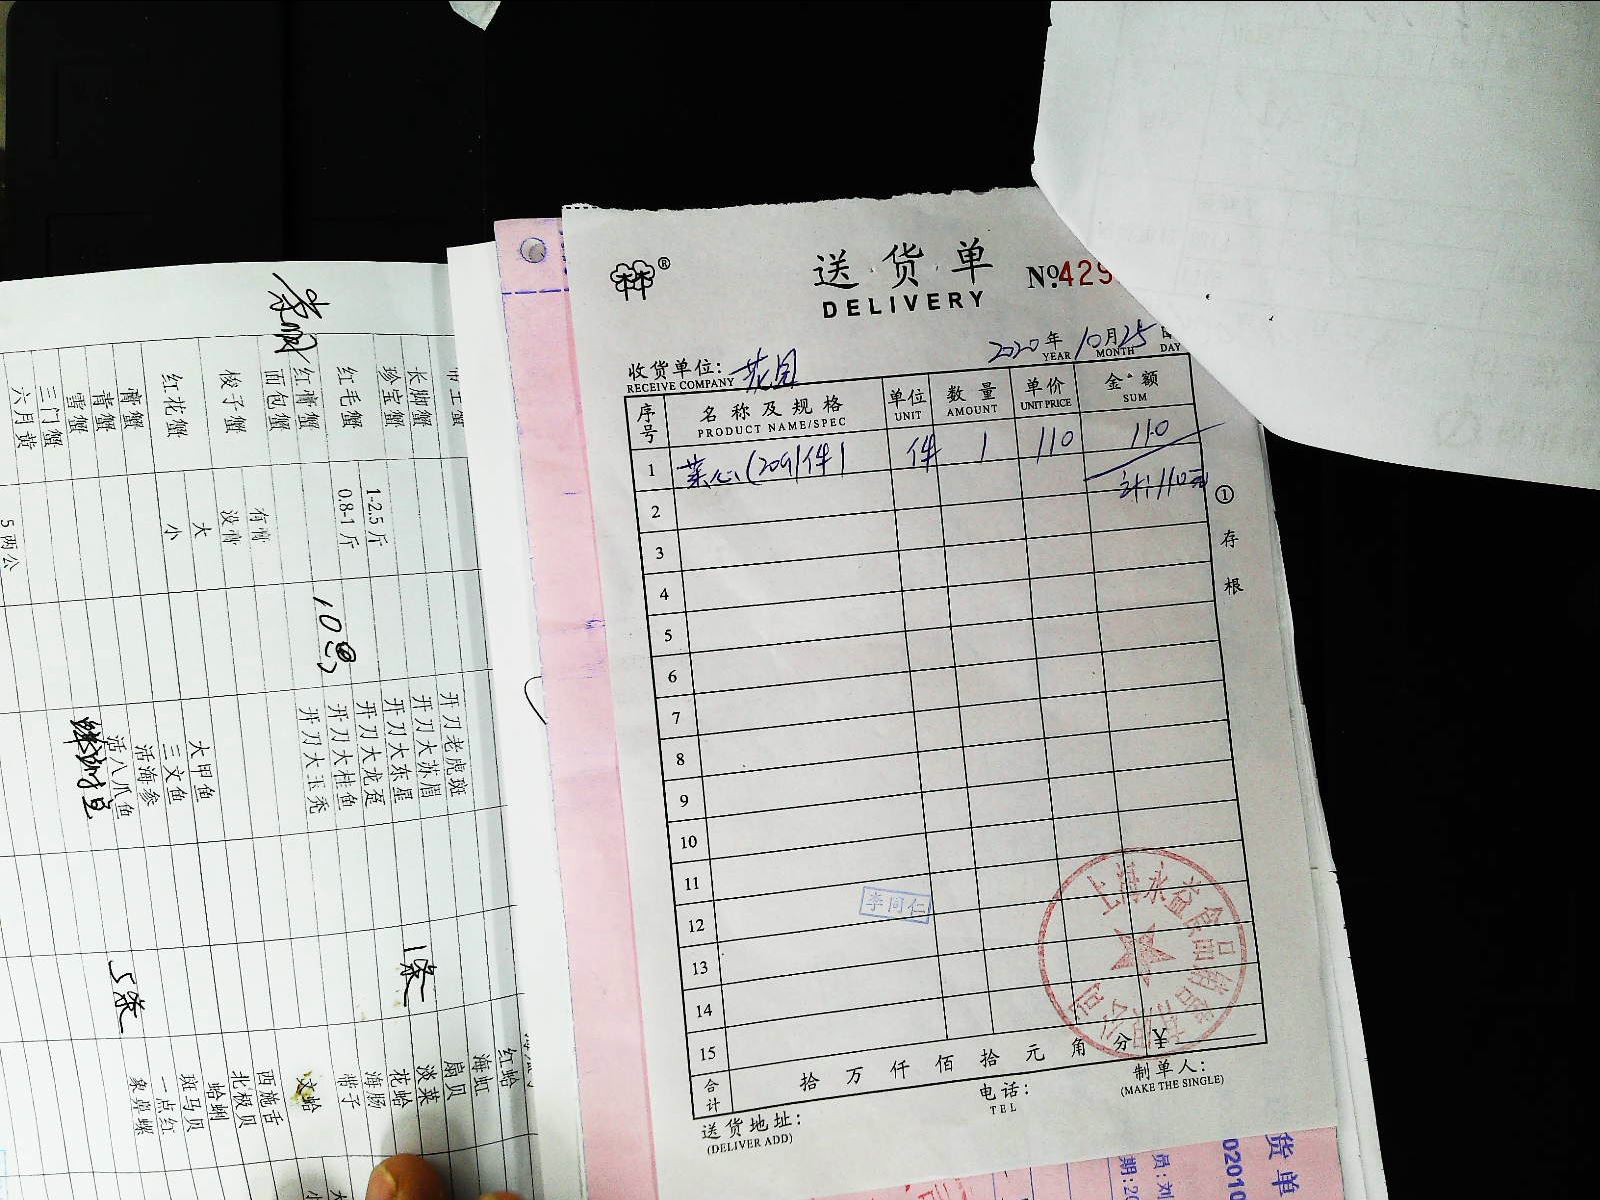 送货单
DELIVERY
®
№429
2020年10月25
YEAR MONTH DAY
收货单位: 花园
RECEIVE COMPANY
序号 名称及规格 单位 数量 单价 金额
PRODUCT NAME/SPEC UNIT AMOUNT UNIT PRICE SUM
1 菜心 件 1 110 110
2 计:110元
3
4
5
6
7
8
9
10
11
12
13
14
15
合计 拾 万 仟 佰 拾 元 角 分 ¥
① 存根
李同仁
上海永益食品销售有限公司
送货地址:
(DELIVER ADD)
电话:
TEL
制单人:
(MAKE THE SINGLE)
长脚蟹
珍宝蟹
红毛蟹 1-2.5斤
0.8-1斤
红膏蟹
面包蟹 有膏
梭子蟹 没膏
大
红花蟹 小
膏蟹
青蟹
雪蟹
三门蟹
六月黄 5两公
10
开刀老虎斑
开刀大苏眉
开刀大东星
开刀大龙趸
开刀大桂鱼
开刀大玉秃
大甲鱼
三文鱼
活海参
活八爪鱼
1条
5条
红蛤
海虹
扇贝
淡菜
花蛤
海肠
带子
文蛤
西施舌
北极贝
蛤蜊
斑马贝
一点红
象鼻螺
货单
02010
员:刘
期:20